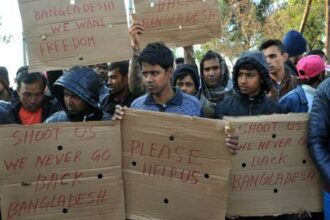 BANGLADESH
WE WANT
FREEDOM
BACK
BANGLADESH
SHOOT US
WE NEVER GO
BACK
BANGLADESH
PLEASE
HELP US
SHOOT US
WE NEVER GO
BACK
BANGLADESH